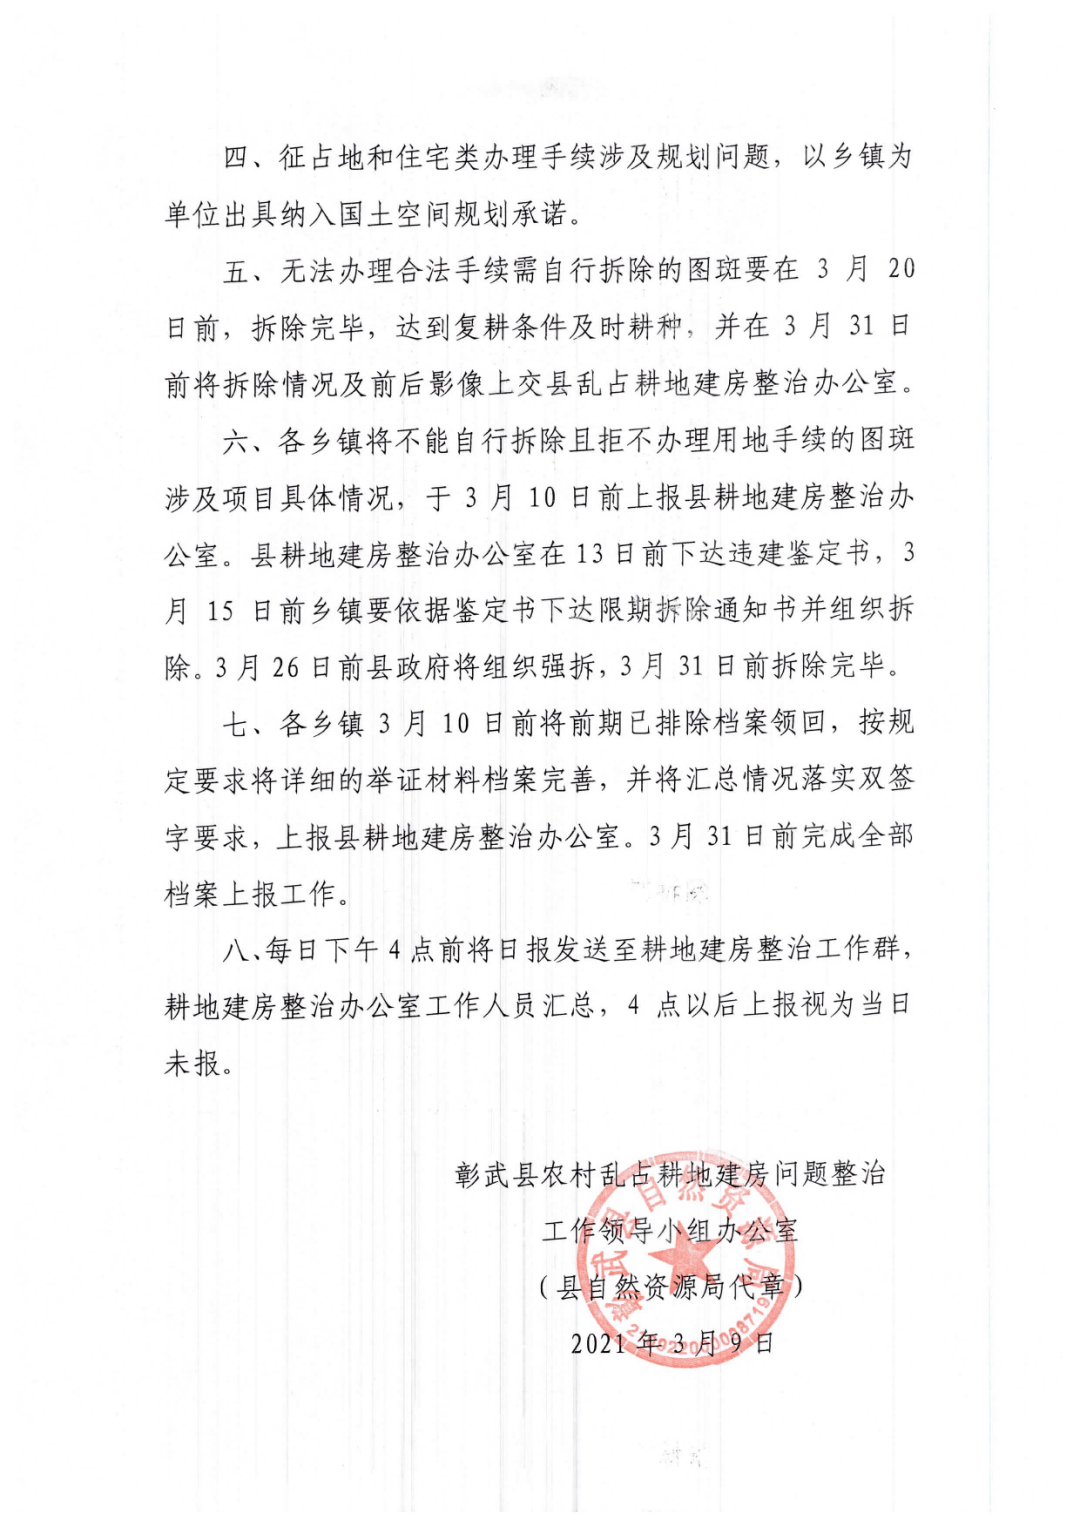 四、征占地和住宅类办理手续涉及规划问题，以乡镇为
单位出具纳入国土空间规划承诺。
五、无法办理合法手续需自行拆除的图斑要在 3 月 20
日前，拆除完毕，达到复耕条件及时耕种，并在 3 月 31 日
前将拆除情况及前后影像上交县乱占耕地建房整治办公室。
六、各乡镇将不能自行拆除且拒不办理用地手续的图斑
涉及项目具体情况，于 3 月 10 日前上报县耕地建房整治办
公室。县耕地建房整治办公室在 13 日前下达违建鉴定书，3
月 15 日前乡镇要依据鉴定书下达限期拆除通知书并组织拆
除。3 月 26 日前县政府将组织强拆，3 月 31 日前拆除完毕。
七、各乡镇 3 月 10 日前将前期已排除档案领回，按规
定要求将详细的举证材料档案完善，并将汇总情况落实双签
字要求，上报县耕地建房整治办公室。3 月 31 日前完成全部
档案上报工作。
八、每日下午 4 点前将日报发送至耕地建房整治工作群，
耕地建房整治办公室工作人员汇总，4 点以后上报视为当日
未报。
彰武县农村乱占耕地建房问题整治
工作领导小组办公室
（县自然资源局代章）
2021 年 3 月 9 日
彰武县自然资源局